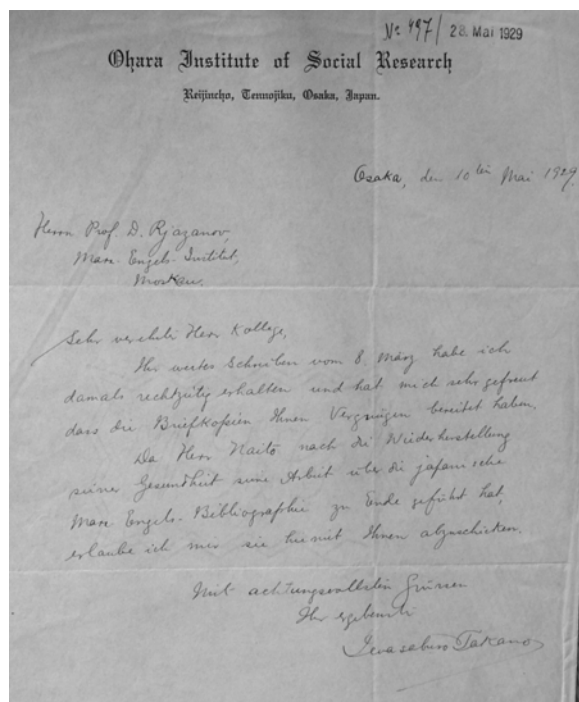 No 497/ 28. Mai 1929
Ohara Institute of Social Research
Reijincho, Tennojiku, Osaka, Japan.
Osaka, den 10ten Mai 1929.
Herrn Prof. D. Rjazanov,
Marx-Engels-Institut,
Moskau.
Sehr verehrter Herr Kollege,
Ihr wertes Schreiben vom 8. März habe ich
damals rechtzeitig erhalten und hat mich sehr gefreut
dass die Briefkopien Ihnen Vergnügen bereitet haben.
Da Herr Naito nach die Wiederherstellung
seiner Gesundheit seine Arbeit über die japanische
Marx-Engels-Bibliographie zu Ende geführt hat,
erlaube ich mir sie hiemit Ihnen abzuschicken.
Mit achtungsvollsten Grüssen
Ihr ergebenster
Iwasaburo Takano